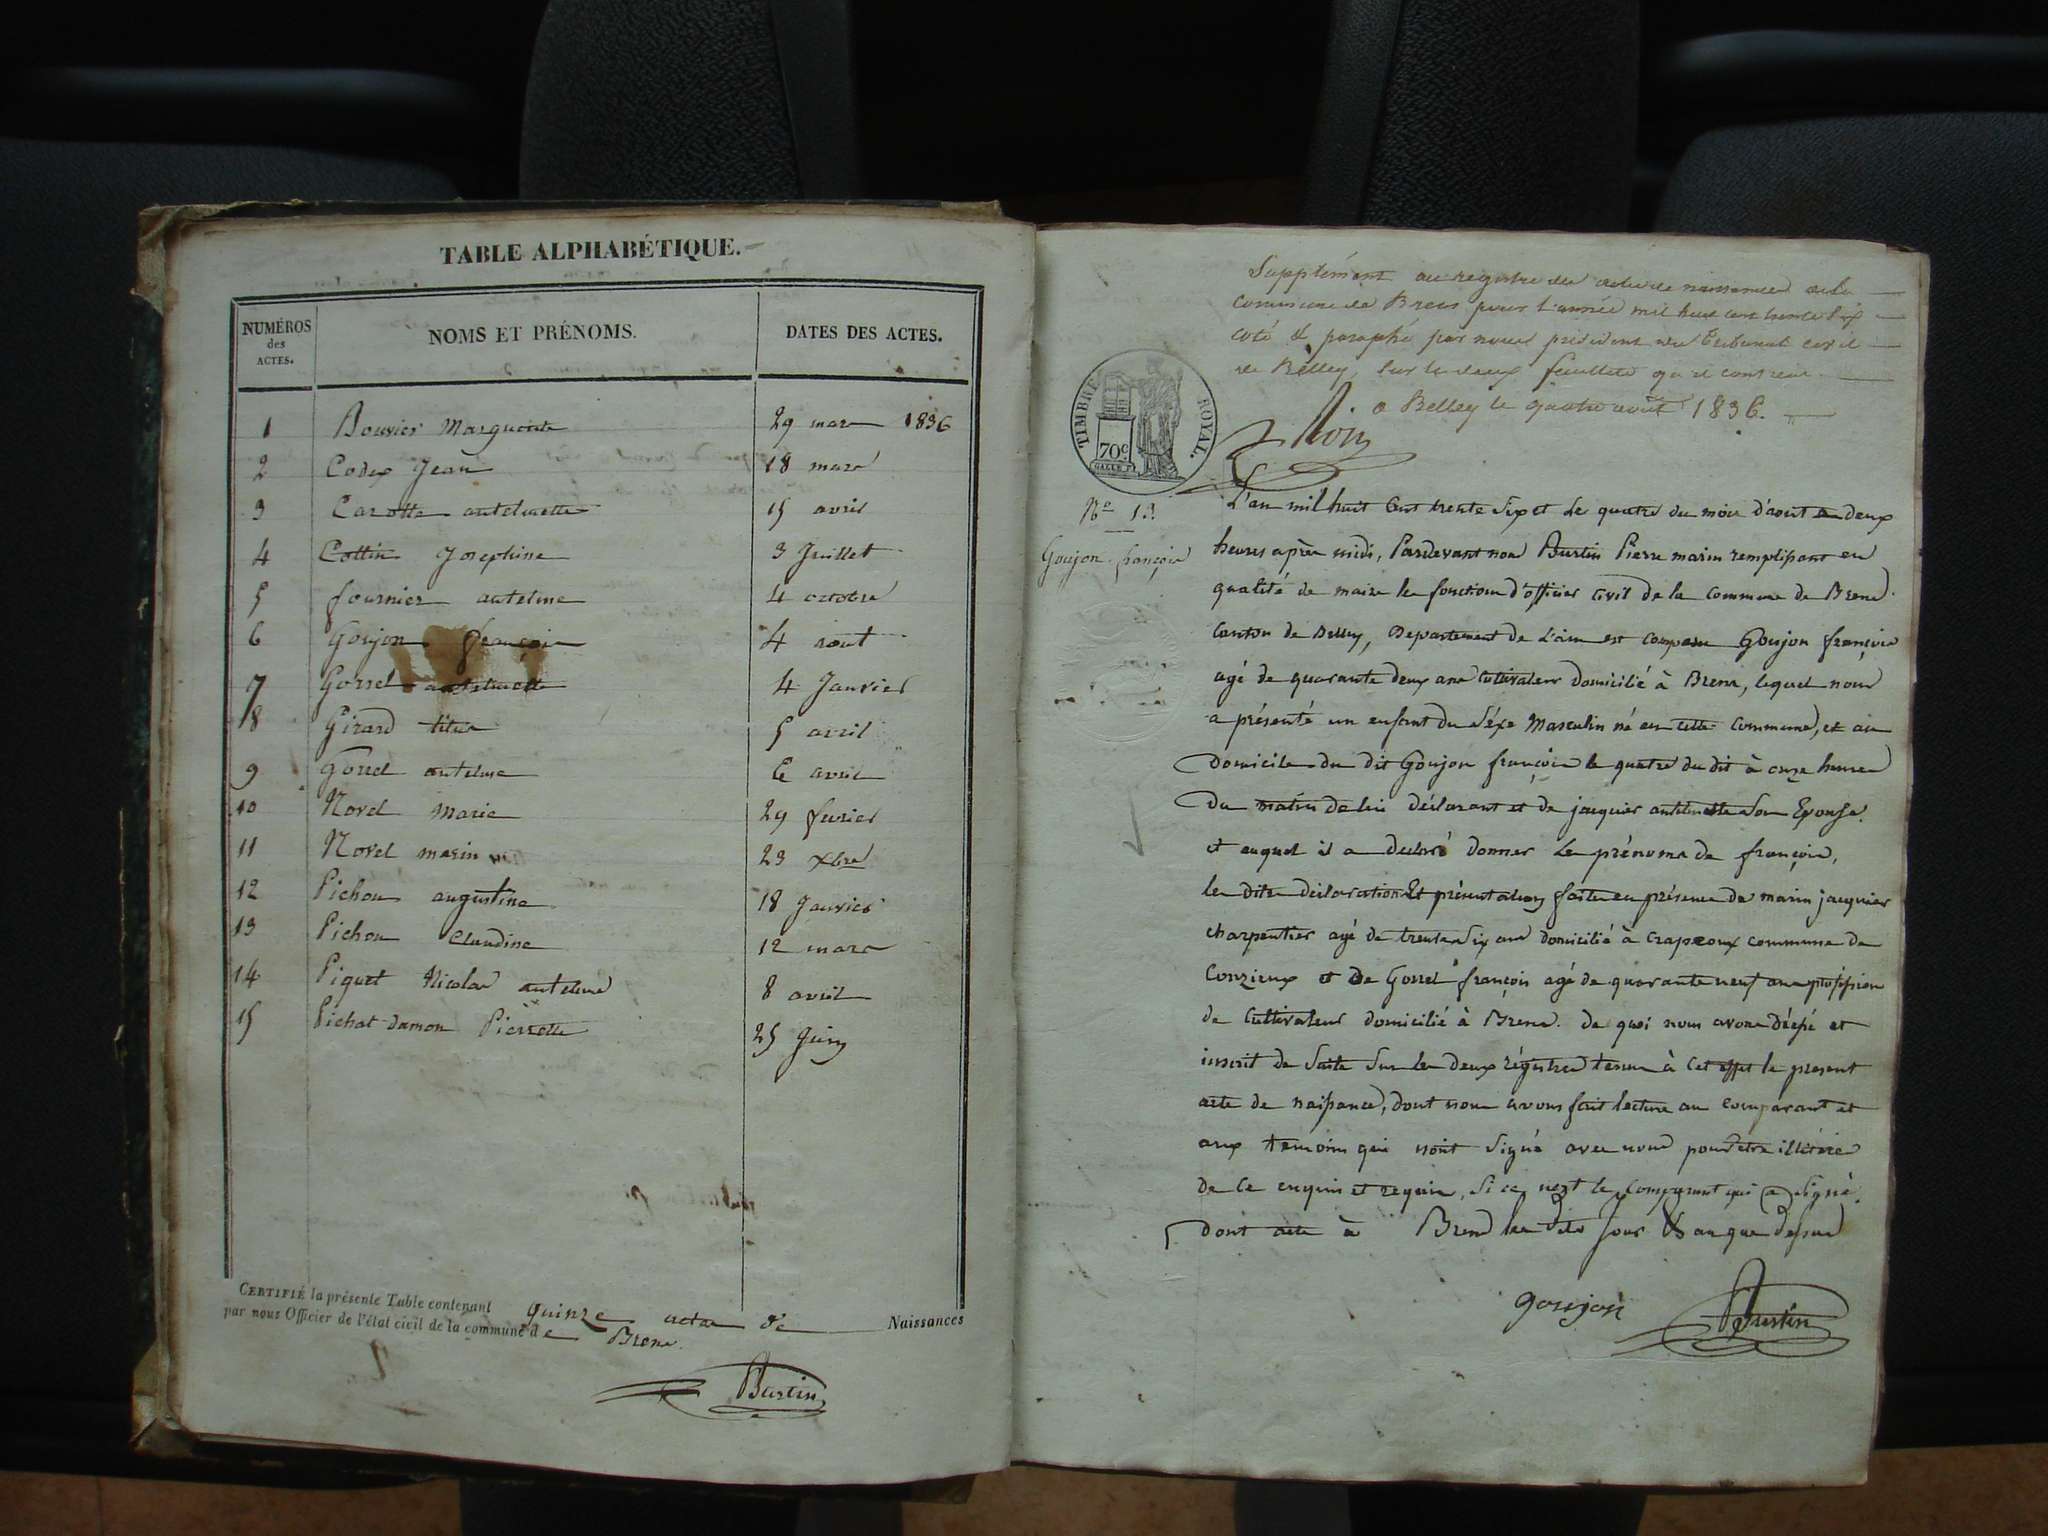 TABLE ALPHABÉTIQUE.
NUMÉROS des ACTES.
NOMS ET PRÉNOMS.
DATES DES ACTES.
1 Bouvier Marguerite 29 mars 1836
2 Codex Jean 18 mars
3 Carotte antelmette 15 avril
4 Cottin Josephine 3 Juillet
5 fournier antelme 4 octobre
6 Goujon françois 4 aout
7 Gorrel antelmette 4 Janvier
8 Girard titus 5 avril
9 Gorrel antelme 6 avril
10 Novel Marie 29 fevrier
11 Novel marin 23 xbre
12 Pichon augustine 18 Janvier
13 Pichon Claudine 12 mars
14 Piquet Nicolas antelme 8 avril
15 Pichat-damon Pierrette 25 Juin
CERTIFIÉ la présente Table contenant quinze actes de Naissances
par nous Officier de l'état civil de la commune de Brens
Burtin
Supplément au registre des actes de naissances de la
commune de Brens pour l'année mil huit cent trente six
coté et paraphé par nous président du Tribunal civil
de Belley, sur les deux feuillets qu'il contient.
a Belley le quatre août 1836.
TIMBRE ROYAL.
70c
N° 13
Goujon françois
L'an mil huit cent trente six et le quatre du mois d'aout a deux
heures après midi, Pardevant nous Burtin Pierre marin remplissant en
qualité de maire les fonctions d'officier Civil de la Commune de Brens
Canton de Belley, Departement de L'ain est comparu Goujon françois
agé de quarante deux ans Cultivateur domicilié à Brens, lequel nous
a présenté un enfant du Séxe Masculin né en cette Commune, et au
Domicile du dit Goujon françois le quatre du dit à onze heures
Du matin de lui déclarant et de jacquier antelmette Son Epouse.
et auquel il a declaré donner le prénoms de françois,
les dites déclaration Et présentation faites en présence de marin jacquier
charpentier agé de trente Six ans domicilié à Crapeoux commune de
Conzieux et De Gorrel françois agé de quarante neuf ans profession
de Cultivateur domicilié à Brens. de quoi nous avons Déssé et
inscrit de Suite Sur les Deux régistres tenus à Cet effet le present
acte de naissance, dont nous avons fait lecture au comparant et
aux temoins qui nont Signé avec nous pour etre illétéré
de ce enquis et requis, Si ce nest le Comparant qui a Signé.
Dont acte à Brens les dits Jour & an que Dessus
goujon
Burtin